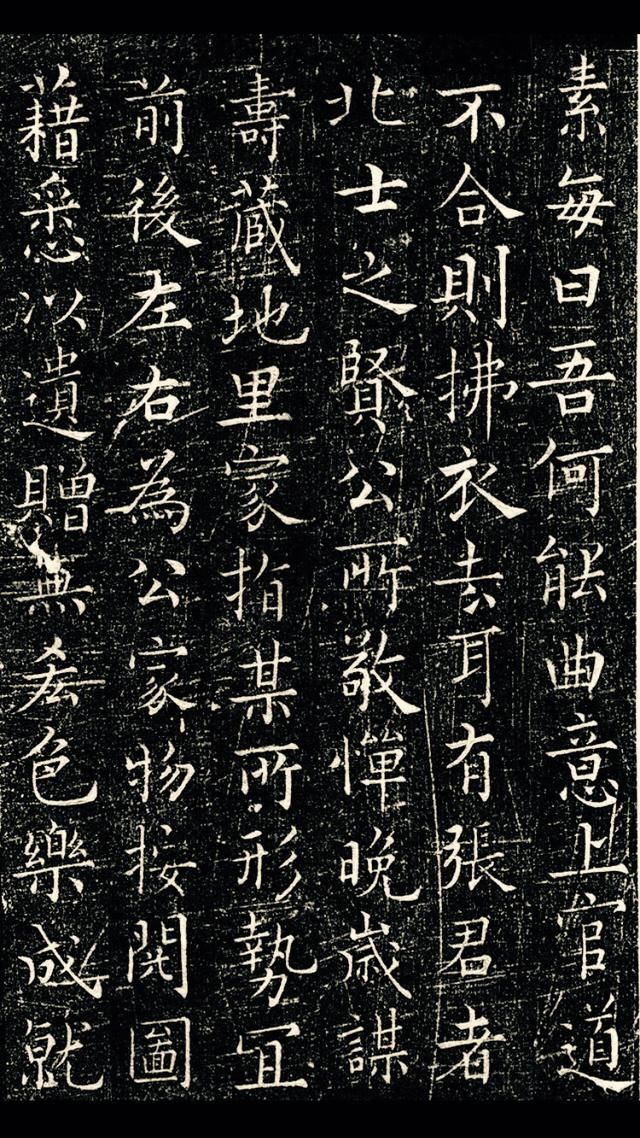 素每曰吾何能曲意上官道
不合則拂衣去耳有張君者
北士之賢公所敬憚晚歲謀
壽藏地里家指某所形勢宜
前後左右為公家物按閱圖
藉悉以遺贈無吝色樂成就